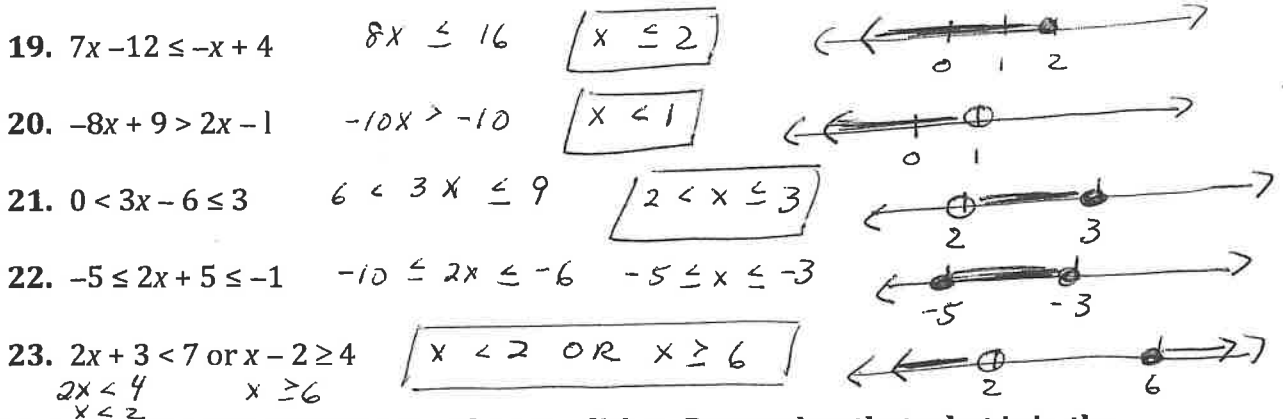 19. 7x –12 ≤ –x + 4 8x ≤ 16 x ≤ 2
0 1 2
20. –8x + 9 > 2x – 1 -10x > -10 x < 1
0 1
21. 0 < 3x – 6 ≤ 3 6 < 3x ≤ 9 2 < x ≤ 3
2 3
22. –5 ≤ 2x + 5 ≤ –1 -10 ≤ 2x ≤ -6 -5 ≤ x ≤ -3
-5 -3
23. 2x + 3 < 7 or x – 2 ≥ 4 x < 2 OR x ≥ 6
2 6
2x < 4 x ≥ 6
x < 2